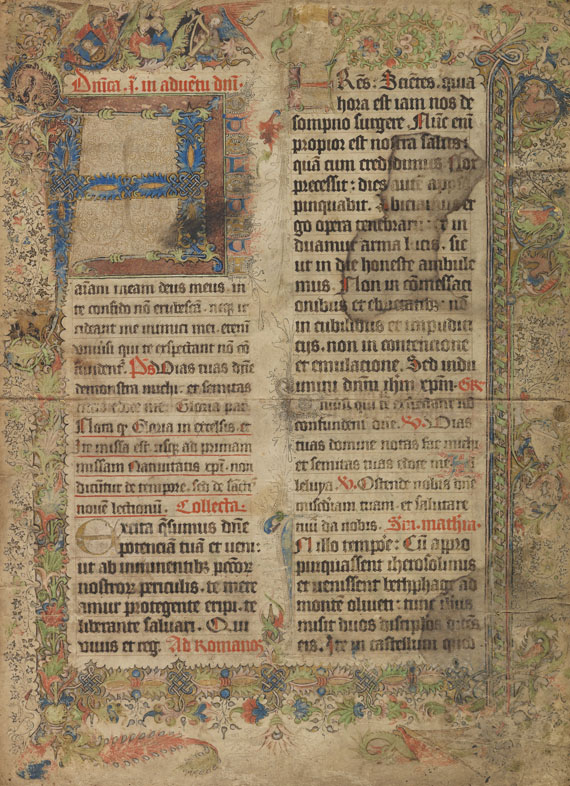 Dn̄ica. j̄. in aduētu dn̄i.
A
d te leua
ui
am̄am meam deus meus. in
te confido nō erubescā. neqꝫ ir
rideant me inimici mei. etenī
vniūsi qui te exspectant nō cō
fundent̄. Ps̄ Vias tuas dn̄e
demonstra michi. et semitas
edoce me. Gloria patri
Nota qꝫ Gloria in excelsis. et
Ite missa est. usqꝫ ad primam
missam Natiuitatis xp̄i. non
dicūtur de tempore. sed de sacti
nouē lectionū. Collecta.
Excita qs̄umus dn̄e
potenciā tuā et veni:
ut ab iminentibꝫ pctōr
nostror̄ periculis. te mere
amur protegente eripi. te
liberante saluari. Qui
viuis et reg. Ad Romanos
FRēs: Sciētes. quia
hora est iam nos de
sompno surgere. Nūc eni
propior est nostra salus:
quā cum credidimus. Nox
precessit: dies autē appro
pinquabit. Abiciamus er
go opera tenebrarū: et in
duamur arma lucis. sic
ut in die honeste ambule
mus. Non in cōmessaci
onibus et ebrietatibꝫ: nō
in cubilibus et impudici
cijs. non in contencione
et emulacione. Sed indu
imini dn̄m ihm̄ xp̄m. Gr̄
vniūsi qui te exspectant nō
confundent dn̄e. V. Vias
tuas domine notas fac michi
et semitas tuas edoce me. Al
leluya. V. Ostende nobis dn̄e
misc̄diam tuam. et salutare
tuū da nobis. Scd̄m matheū.
IN illo tempore: Cū appro
pinquasset iherosolimis
et venisset bethphage ad
montē oliueti: tunc ihūs
misit duos discip̄los dicēs
eis. Ite in castellum quod